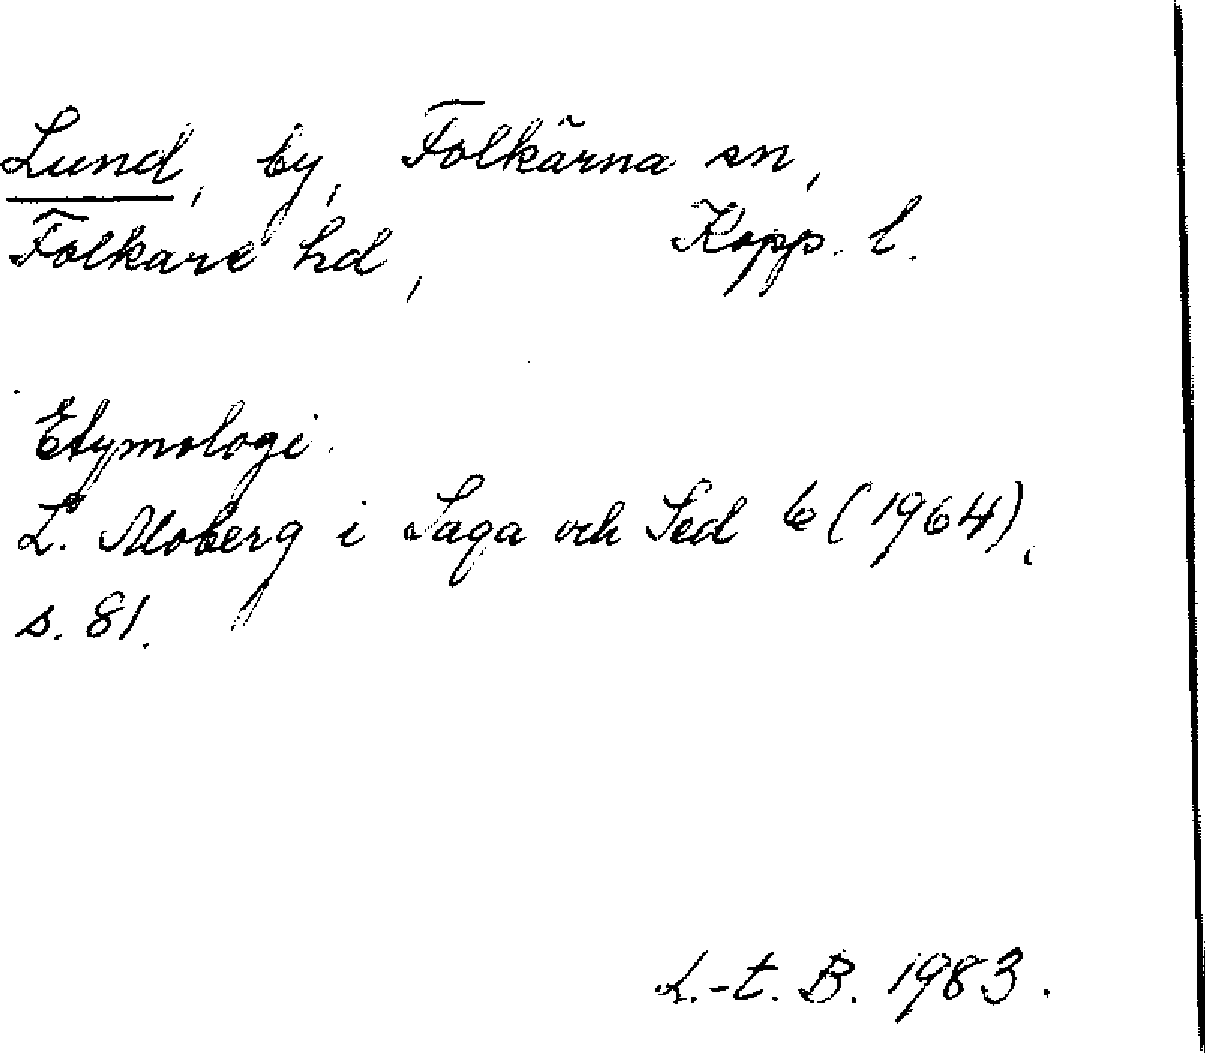 Lund, by, Folkärna sn,
Folkare hd, Kopp. l.
Etymologi.
L. Moberg i Saga och Sed 6 (1964),
s. 81.
L.-t. B. 1983.